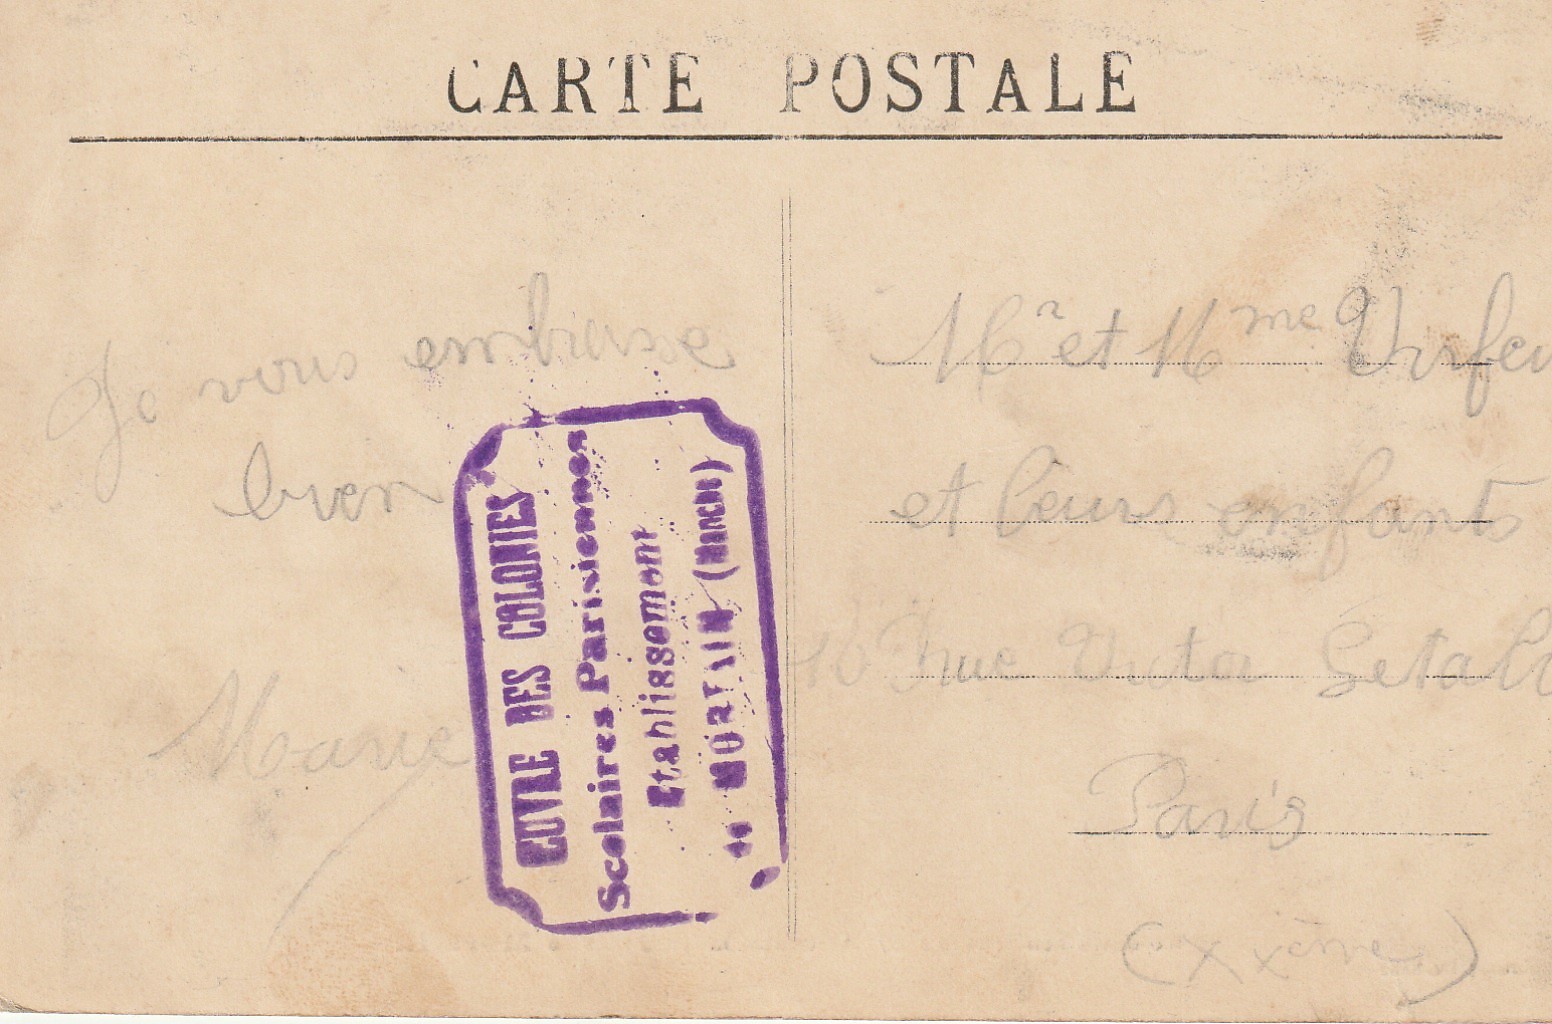 CARTE POSTALE
Je vous embrasse
bien
Marie
ŒUVRE DES COLONIES
Scolaires Parisiennes
Etablissement
de MORTAIN (MANCHE)
Mr et Mme
et leurs enfants
16 rue Victor
Paris
(XXème)